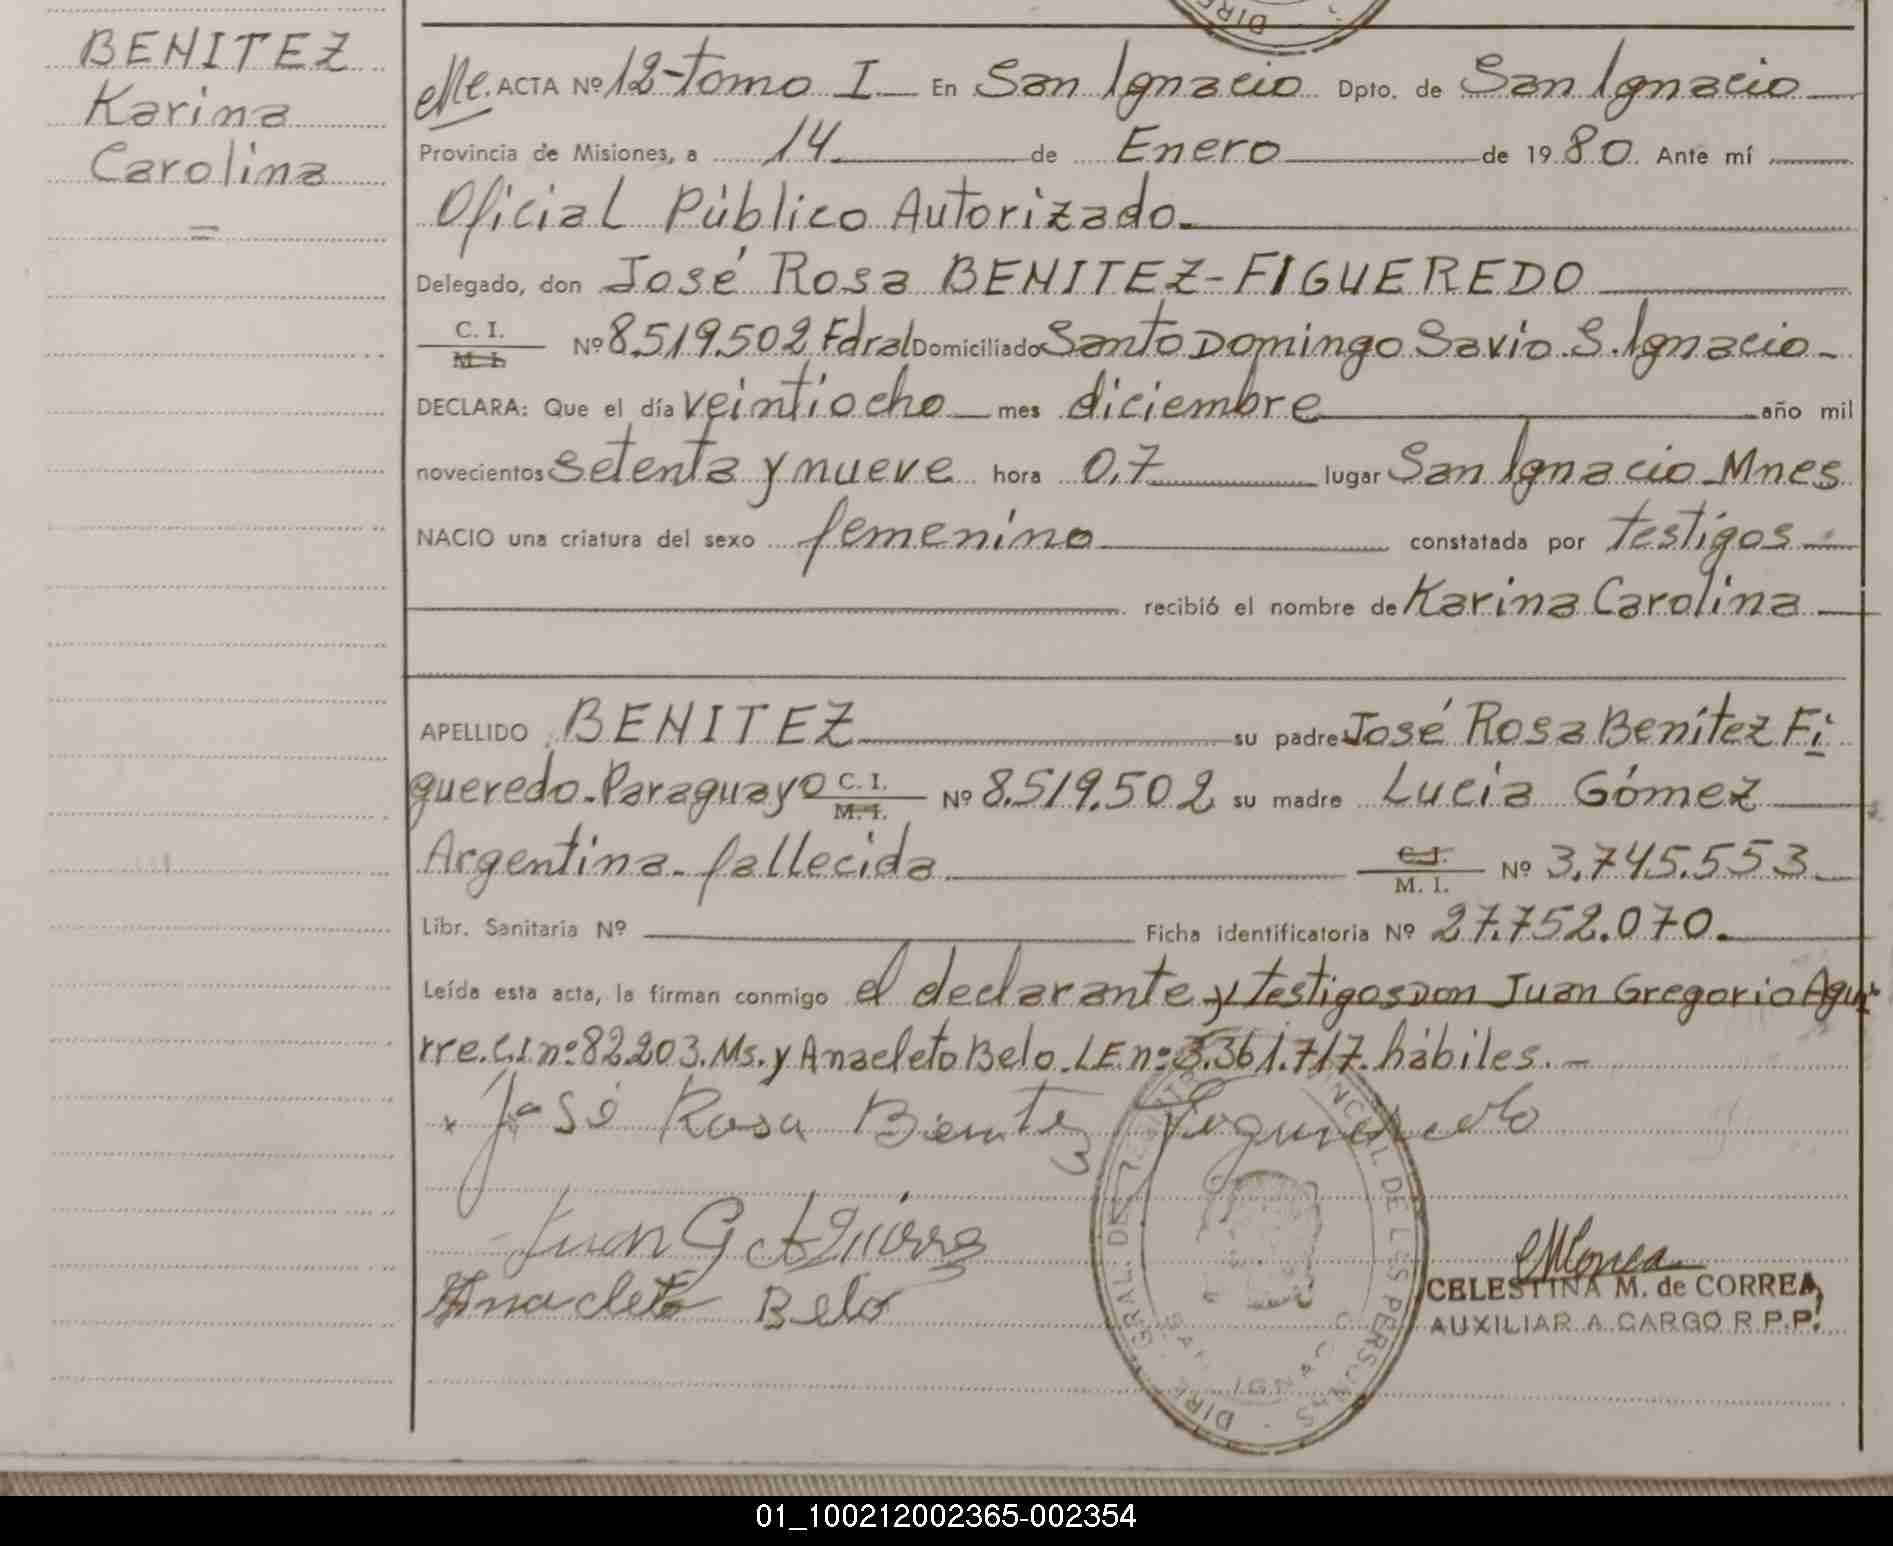 BENITEZ
Karina
Carolina
=
ACTA Nº 12-Tomo I En San Ignacio Dpto. de San Ignacio
Provincia de Misiones, a 14 de Enero de 1980. Ante mí
Oficial Público Autorizado.
Delegado, don José Rosa BENITEZ-FIGUEREDO
C. I. M. I. Nº 8.519.502 Fdral Domiciliado Santo Domingo Savio. S. Ignacio-
DECLARA: Que el día veintiocho mes diciembre año mil
novecientos setenta y nueve hora 0,7 lugar San Ignacio Mnes
NACIO una criatura del sexo femenino constatada por testigos
recibió el nombre de Karina Carolina
APELLIDO BENITEZ su padre José Rosa Benítez Fi
gueredo. Paraguayo C. I. M. I. Nº 8.519.502 su madre Lucía Gómez
Argentina. fallecida C. I. M. I. Nº 3.745.553
Libr. Sanitaria Nº Ficha identificatoria Nº 27.752.070.
Leída esta acta, la firman conmigo el declarante y testigos Don Juan Gregorio Agui
rre. C.I. nº 82.203. Ms. y Anacleto Belo. LE nº 3.361.717. hábiles.-
José Rosa Benitez Figueredo
Juan G Aguirre
Anacleto Belo
CELESTINA M. de CORREA
AUXILIAR A CARGO R.P.P.
SAN IGNACIO
01_100212002365-002354